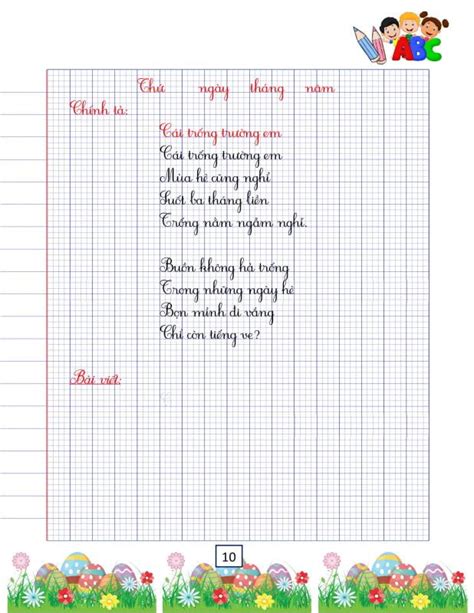 ABC
Thứ ngày tháng năm
Chính tả:
Cái trống trường em
Cái trống trường em
Mùa hè cũng nghỉ
Suốt ba tháng liền
Trống nằm ngẫm nghĩ.
Buồn không hả trống
Trong những ngày hè
Bọn mình đi vắng
Chỉ còn tiếng ve?
Bài viết:
10